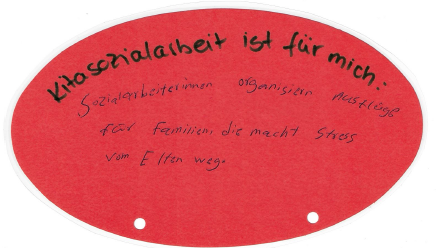 Kitasozialarbeit ist für mich:
Sozialarbeiterinnen organisiern Ausflüge
für Familien, die macht Stress
vom Elten weg.